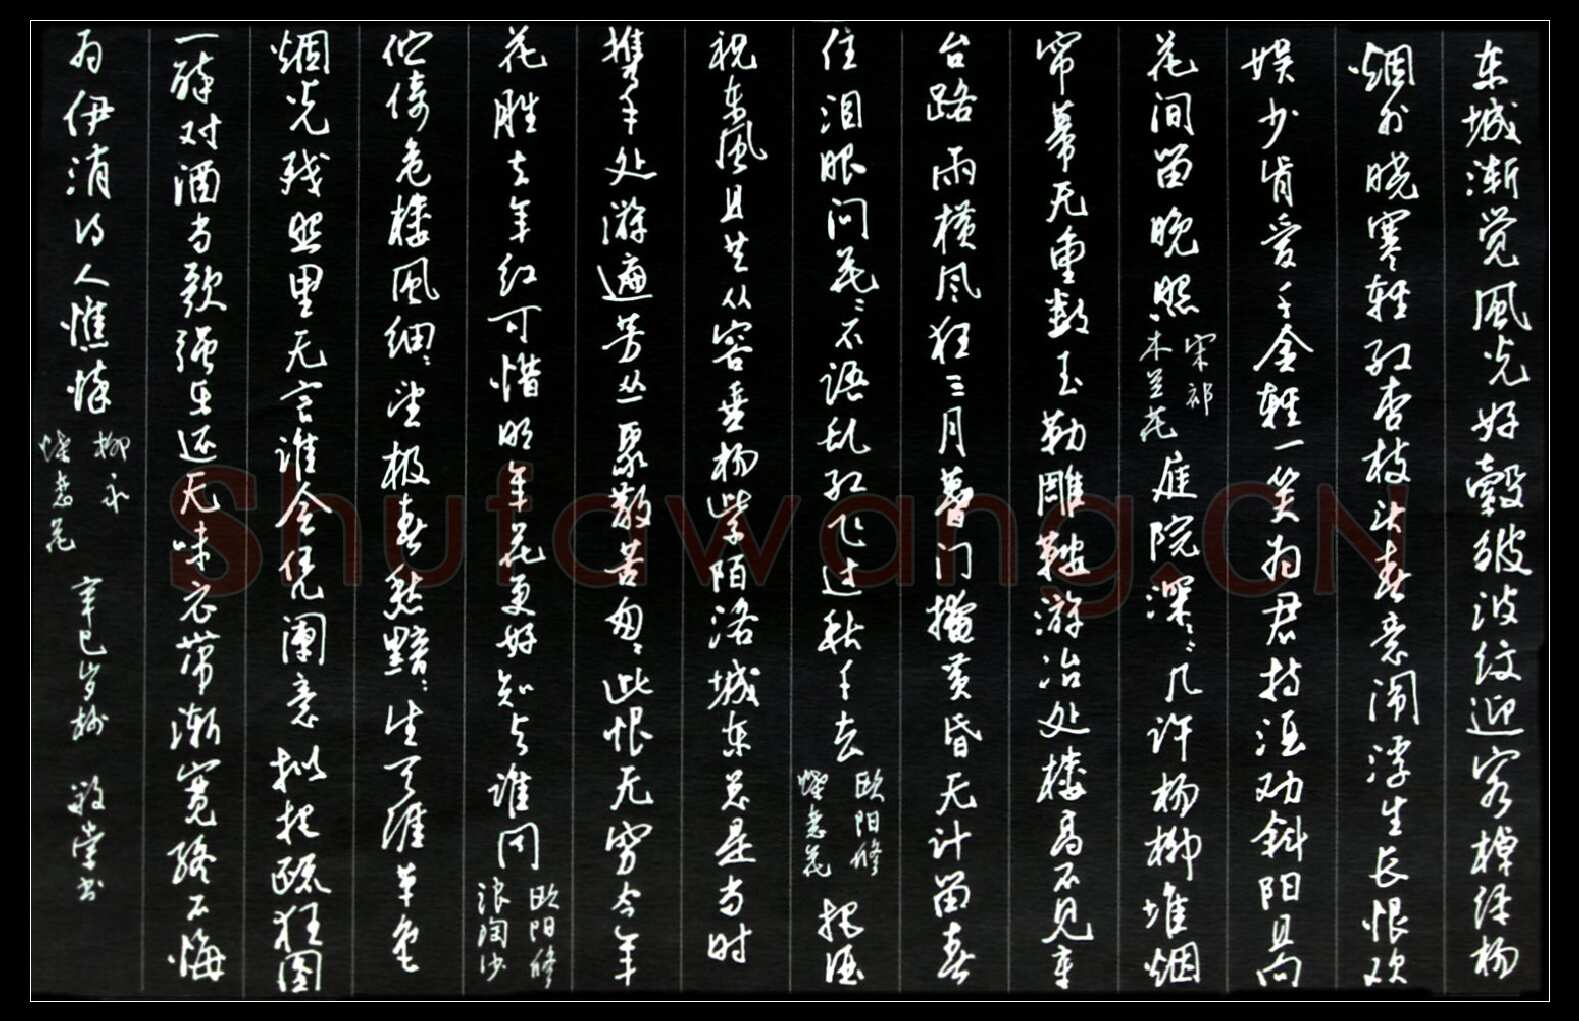 东城渐觉風光好縠皱波纹迎客棹绿杨
烟外晓寒轻红杏枝头春意闹浮生长恨欢
娱少肯爱千金轻一笑为君持酒劝斜阳且向
花间留晚照
宋祁
木兰花
庭院深〻几许杨柳堆烟
帘幕无重数玉勒雕鞍游冶处楼高不见章
台路雨横风狂三月暮门掩黄昏无计留春
住泪眼问花〻不语乱红飞过秋千去
欧阳修
蝶恋花
把酒
祝东風且共从容垂杨紫陌洛城东总是当时
携手处游遍芳丛聚散苦匆〻此恨无穷今年
花胜去年红可惜明年花更好知与谁同
欧阳修
浪淘沙
伫倚危楼風细〻望极春愁黯〻生天涯草色
烟光残照里无言谁会凭阑意拟把疏狂图
一醉对酒当歌强乐还无味衣带渐宽终不悔
为伊消得人憔悴
柳永
蝶恋花
辛巳岁秋
敬崇书
Shufawang.CN